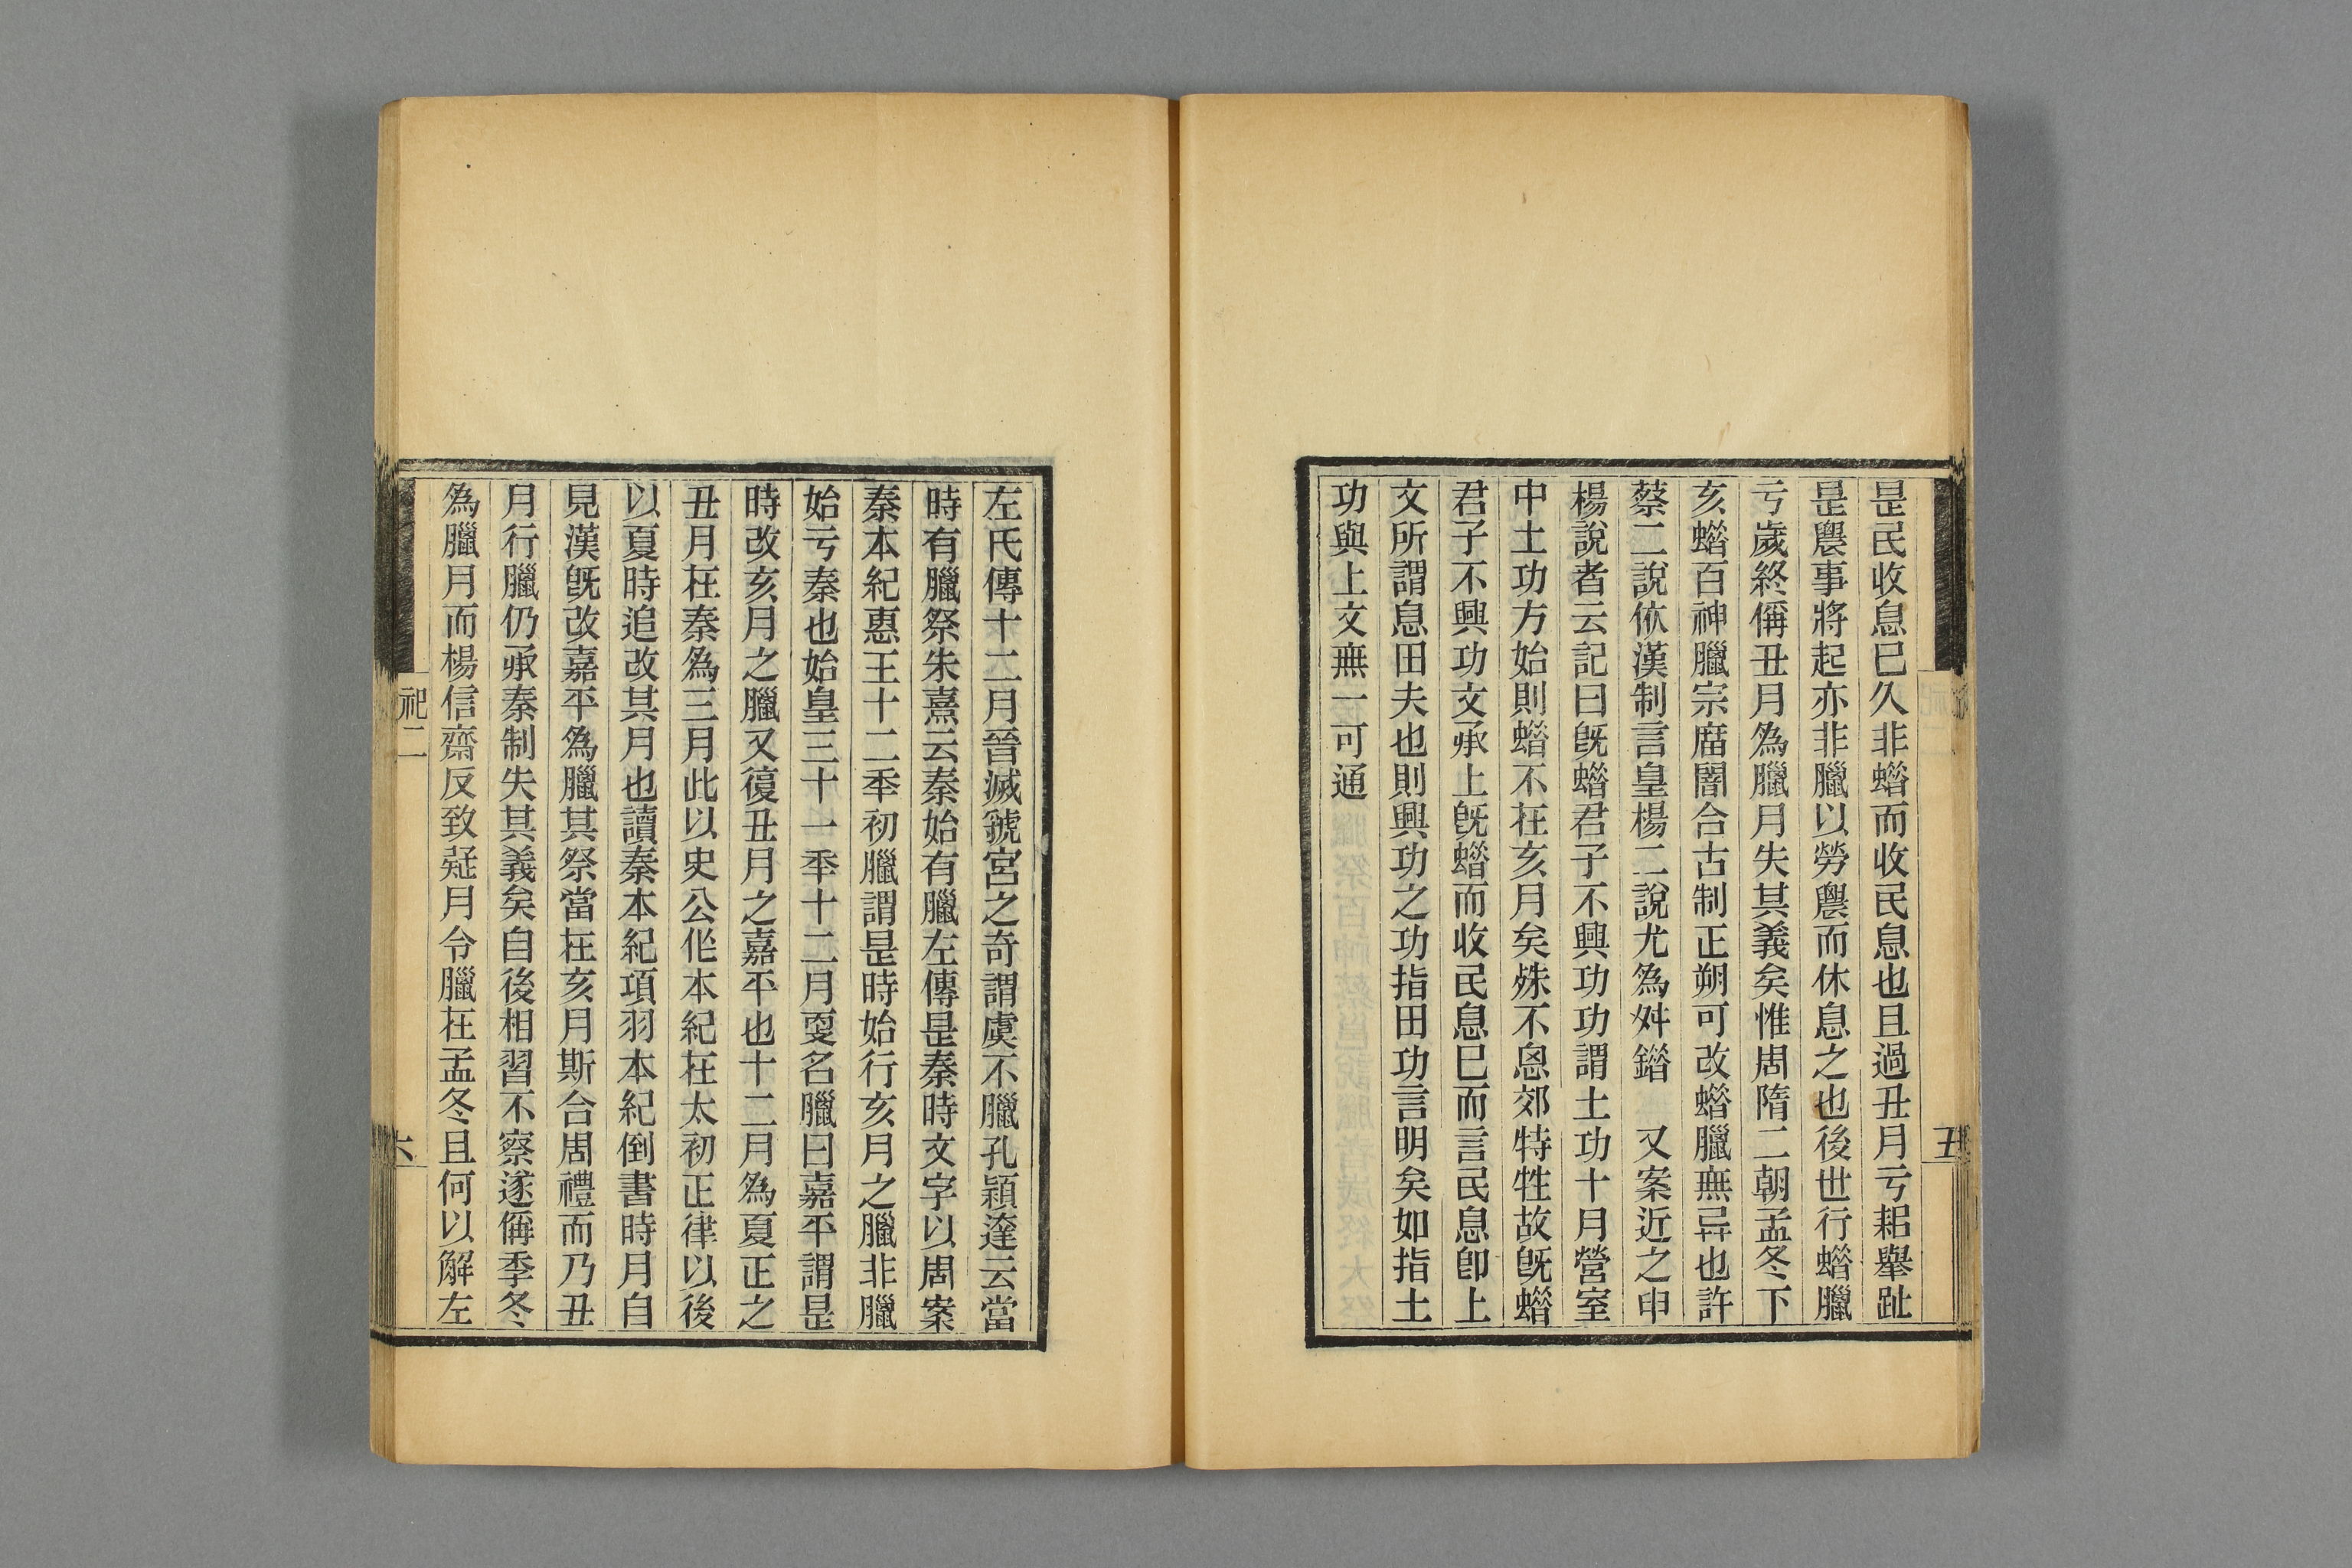 昰民收息巳久非蜡而收民息也且過丑月亏耜舉趾
昰農事將起亦非臘以勞農而休息之也後世行蜡臘
亏歲終偁丑月爲臘月失其義矣惟周隋二朝孟冬下
亥蜡百神臘宗廟闇合古制正朔可改蜡臘無异也許
蔡二說依漢制言皇楊二說尤爲舛錯　又案近之申
楊說者云記曰旣蜡君子不興功功謂土功十月營室
中土功方始則蜡不在亥月矣殊不思郊特牲故旣蜡
君子不興功文承上旣蜡而收民息巳而言民息卽上
文所謂息田夫也則興功之功指田功言明矣如指土
功與上文無一可通
五
左氏傳十二月晉滅虢宮之奇謂虞不臘孔穎達云當
時有臘祭朱熹云秦始有臘左傳昰秦時文字以周案
秦本紀惠王十二秊初臘謂昰時始行亥月之臘非臘
始亏秦也始皇三十一秊十二月㪅名臘曰嘉平謂昰
時改亥月之臘又復丑月之嘉平也十二月爲夏正之
丑月在秦爲三月此以史公作本紀在太初正律以後
以夏時追改其月也讀秦本紀項羽本紀倒書時月自
見漢旣改嘉平爲臘其祭當在亥月斯合周禮而乃丑
月行臘仍承秦制失其義矣自後相習不察遂偁季冬
爲臘月而楊信齋反致疑月令臘在孟冬且何以解左
祀二
六